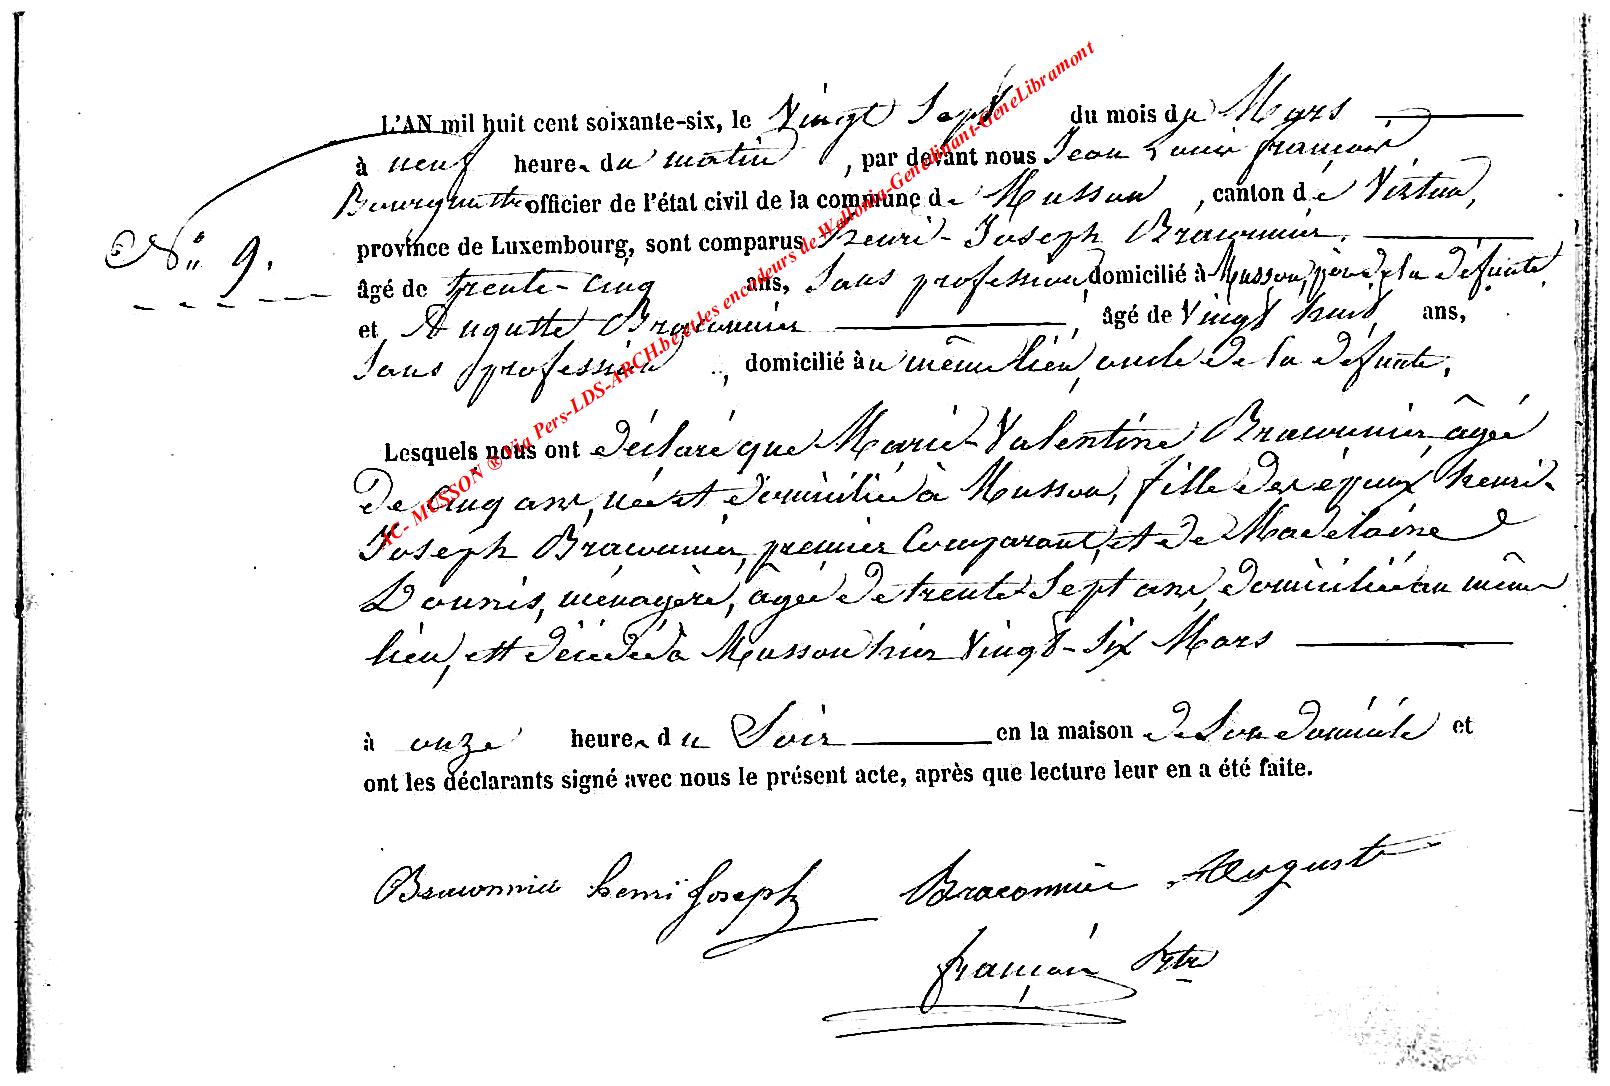 L'AN mil huit cent soixante-six, le Vingt Sept du mois de Mars
à neuf heures du matin, par devant nous Jean Louis François,
Bourgmestre officier de l'état civil de la commune de Musson, canton de Virton,
N° 9. province de Luxembourg, sont comparus henri-Joseph Braconnier.
âgé de trente-cinq ans, Sans profession, domicilié à Musson, père de la défunte,
et Auguste Braconnier, âgé de Vingt huit ans,
Sans profession, domicilié au même lieu, oncle de la défunte,
Lesquels nous ont déclaré que Marie-Valentine Braconnier, âgée
de cinq ans, née et domiciliée à Musson, fille des époux henri-
Joseph Braconnier, premier Comparant, et de Madelaine
ménagère, âgée de trente Sept ans, domiciliée au même
lieu, est décédée à Musson hier Vingt-Six Mars
à onze heures du Soir en la maison de Son domicile et
ont les déclarants signé avec nous le présent acte, après que lecture leur en a été faite.
Braconnier henri joseph Braconnier Auguste
françois
AC- MUSSON ® Via Pers-LDS-ARCH.be et les encodeurs de Wallonia-Genedinant-GeneLibramont